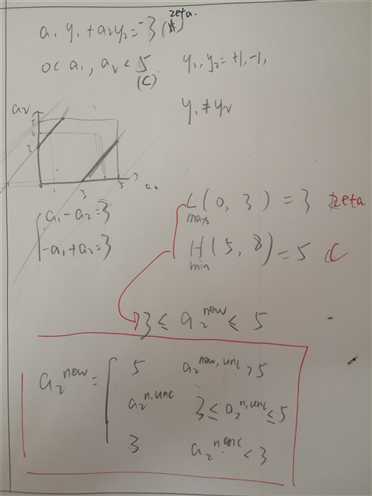 zeta.
a₁ y₁ + a₂y₂ = -3
0< a₁, a₂ < 5 y₁, y₂ = +1, -1,
(C)
y₁ ≠ y₂
a₂
3
3 5
{ a₁ - a₂ = 3
-a₁ + a₂ = 3
L (0, 3) = 3 zeta
max
H (5, 8) = 5 C
min
3 ≤ a₂ⁿᵉʷ ≤ 5
a₂ⁿᵉʷ = { 5 a₂ⁿᵉʷ,ᵘⁿᶜ > 5
a₂ⁿ,ᵘⁿᶜ 3 ≤ a₂ⁿ,ᵘⁿᶜ ≤ 5
3 a₂ⁿ,ᵘⁿᶜ < 3